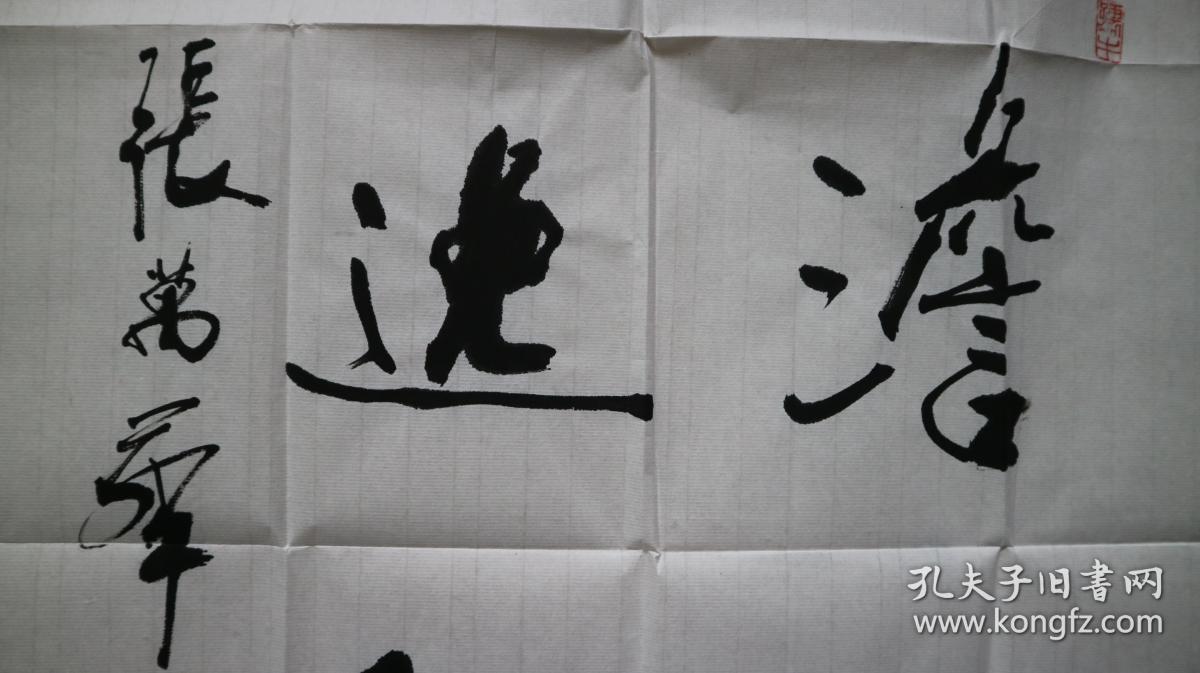 澹
逸
張萬華
孔夫子旧书网
www.kongfz.com